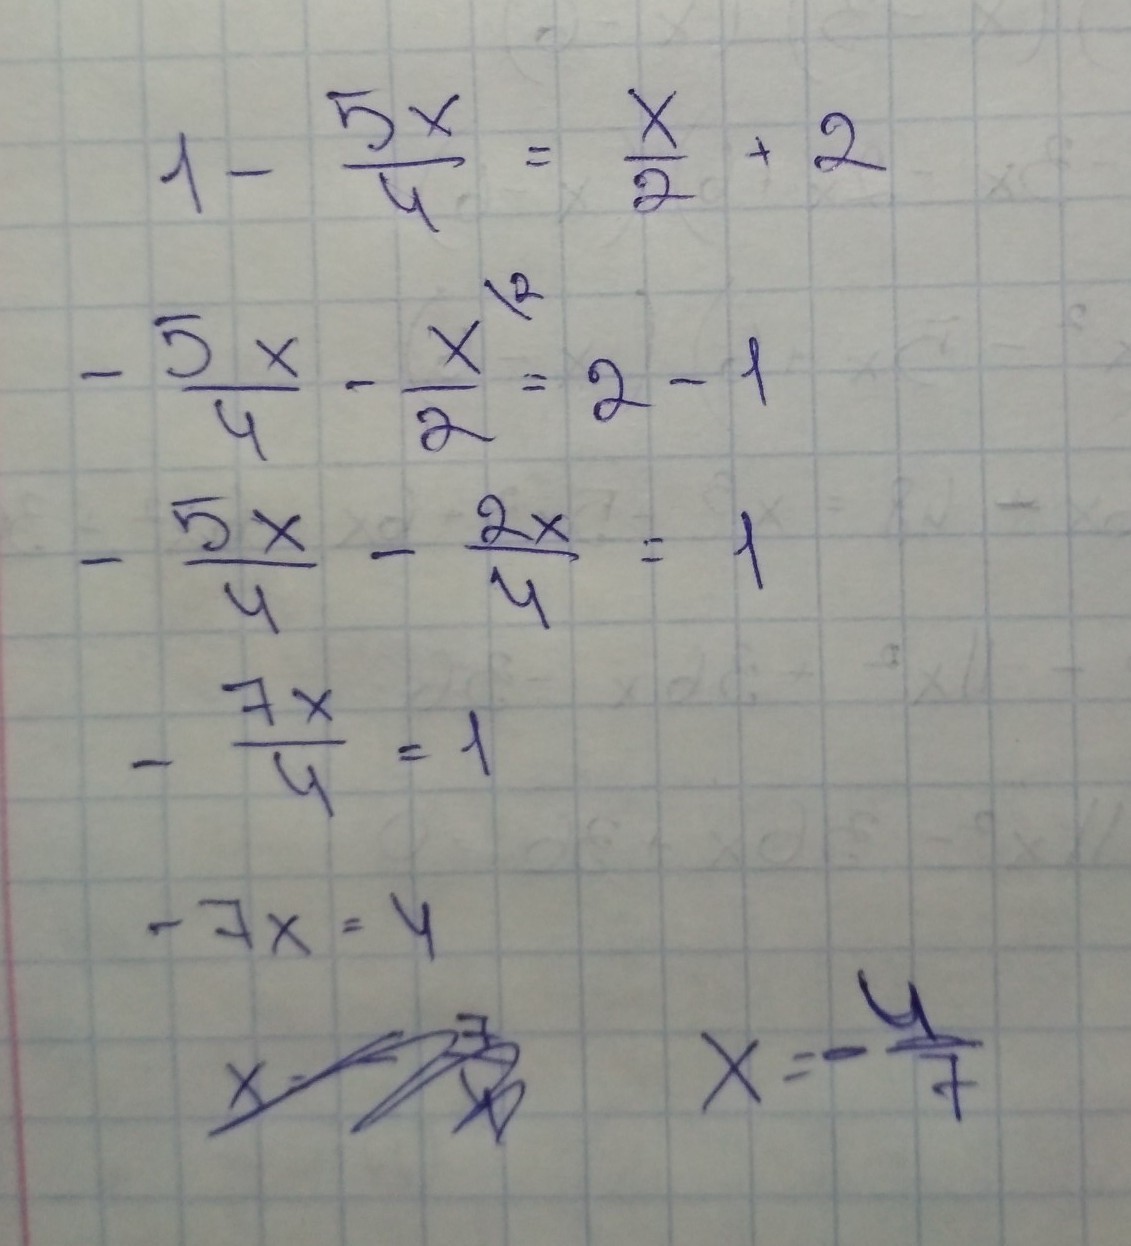 1 - 5x/4 = x/2 + 2
- 5x/4 - x/2 \2 = 2 - 1
- 5x/4 - 2x/4 = 1
- 7x/4 = 1
- 7x = 4
x = - 4/7